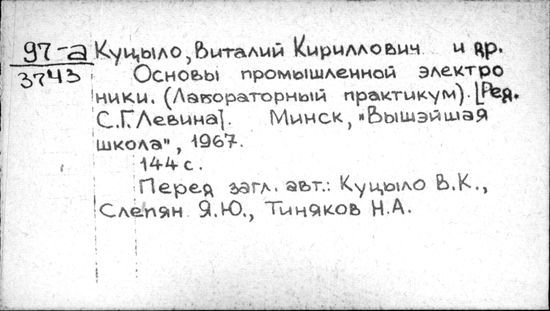 97-а Куцыло, Виталий Кириллович и др.
3743
Основы промышленной электро
ники. (Лабораторный практикум). [Ред.
С.Г. Левина]. Минск, "Вышэйшая
школа", 1967.
144 с.
Перед загл. авт.: Куцыло В.К.,
Слепян Я.Ю., Тиняков Н.А.